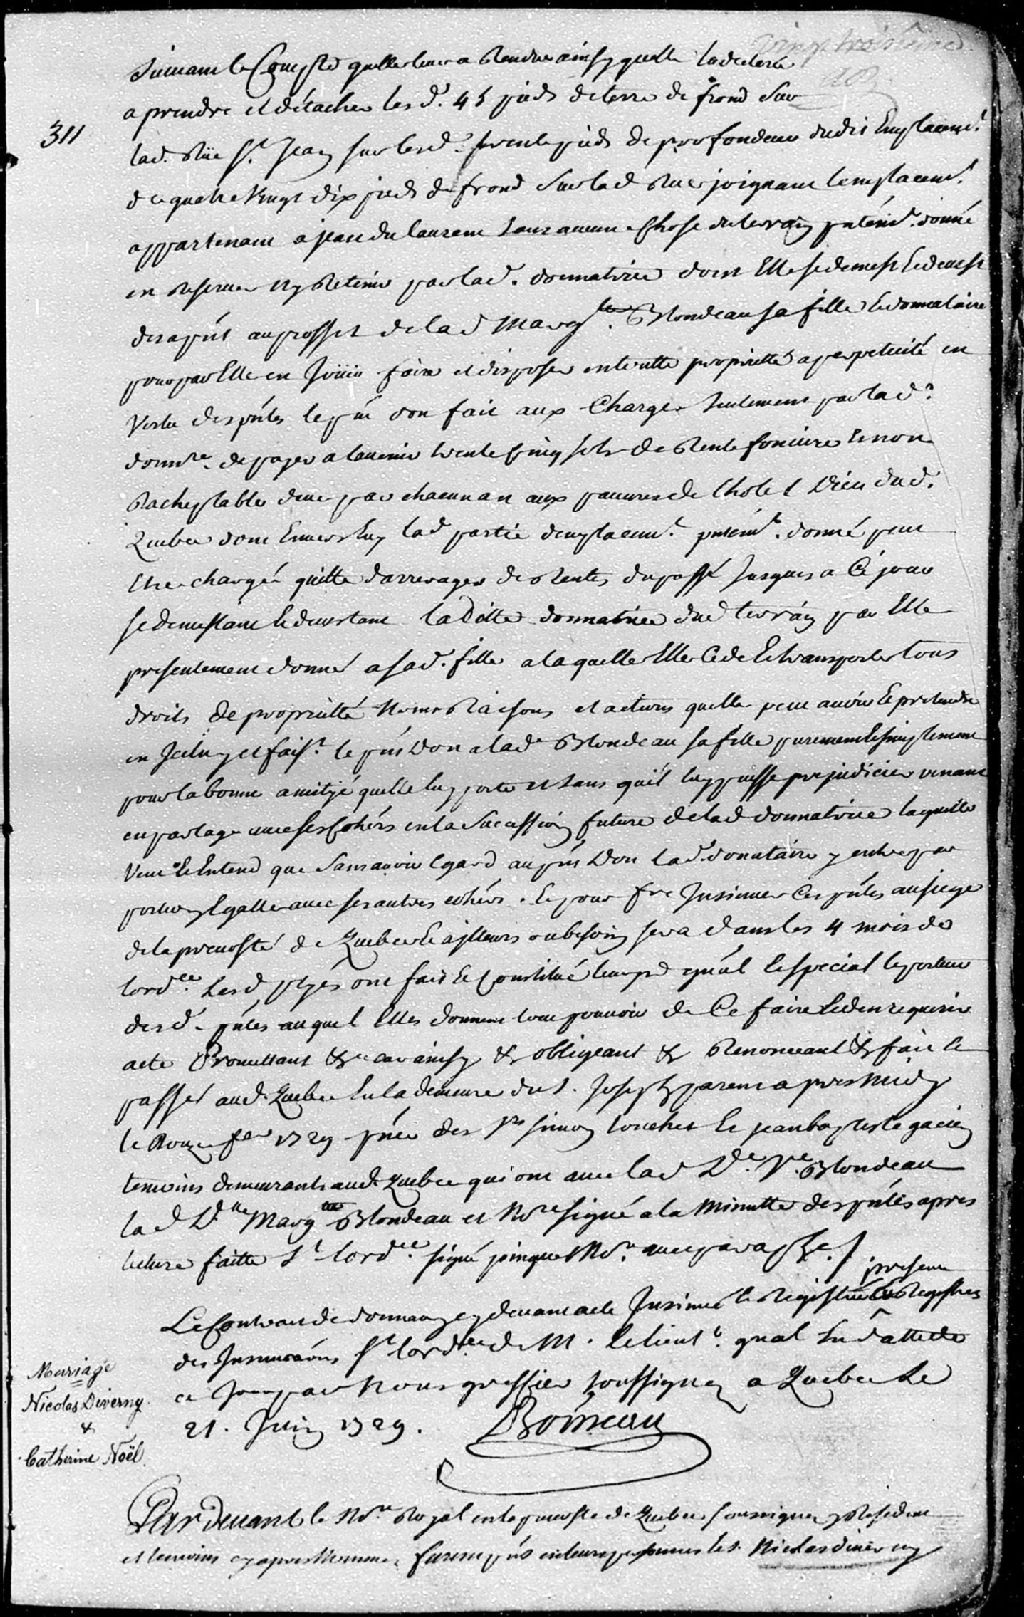 vingt troisieme
suivant le Compte quelle leur a Rendu ainsy quelle la declaré
a prendre et détacher lesd. 45 pieds de terre de frond sur
311
lad. Rüe St. Jean sur lesd. trente pieds de profondeur dudit Emplacemt.
de quatre Vingt dix pieds de frond sur lad Rue joignant lemplacemt.
appartenant a Jean du laurent sans aucune Chose du terrain pntémt. donné
en Reserver ny Retenir par lad. donnatrice dont Elle se demest Et devest
desapnt au proffit de lad Margte. Blondeau sa fille donnataire
pour par Elle en Jouir faire et disposer en toutte proprietté a perpetuité en
Vertu des pntes le pnt don fait aux Charges seulement par lad.
donnre. de payer a lavenir trente Cinq sols de Rente fonciere Et non
Racheptable deue par chacun an aux pauvres de lhotel Dieu dud.
Quebec dont Envers Luy lad partie demplacemt. pntémt. donné peut
Etre chargée quitte darrerages de Rentes du passé Jusques a Ce jour
se demettant Et devestant laditte donnatrice dud terrain par Elle
presentement donné a sad. fille a laquelle Elle Cede Et transporte tous
droits de proprietté Noms Raisons et actions quelle peut avoir Et pretendre
en Iceluy et fait. le pnt Don a lad Blondeau sa fille purement Et simplement
pour la bonne amitié quelle luy porte et sans quil luy puisse prejudicier venant
en partage avec ses Cohers en la Succession future de lad donnatrice laquelle
Veut Et Entend que sans avoir Egard au pnt Don lad. donataire y entre par
portion Egalle avec ses autres cohers. Et pour fre Insinuer Ces pntes au siege
de la prevosté de Quebec Et ailleurs ou besoin sera dans les 4 mois de
lordce. Lesd. ptyes ont fait Et Constitué leur pr gnal Et special le porteur
desd. pntes auquel Elles donnent tout pouvoir de Ce faire Et den requerir
acte Promettant &c car ainsy & obligeant & Renonceant & fait Et
passé aud. Quebec En la demeure du S. Joseph parent apres Midy
le Onze fer 1729 pnce des Srs simon touchet Et Jean baptiste gacien
temoins demeurants aud. Quebec qui ont avec lad De. Ve. Blondeau
la d Dlle Margtte Blondeau et Nore signé a la Minutte des pntes apres
lecture faitte St lordce. signé pinguet Nore. avec paraphe
Le Contrat de donnaon cy devant a eté Insinué Et Registré es Registres
present
des Insinuaons St lordce de M. le lieut. gnal En datte de
ce Jour par Nous greffier soussigné a Quebec le
21. Juin 1729. Boisseau
Marriage
Nicolas Diverny
&
Catherine Noël
Par devant le Nore Royal en la prevosté de Quebec soussigné y Resident
et temoins cy apres Nommés furent pnts en leurs personnes le S. Nicolas diverny